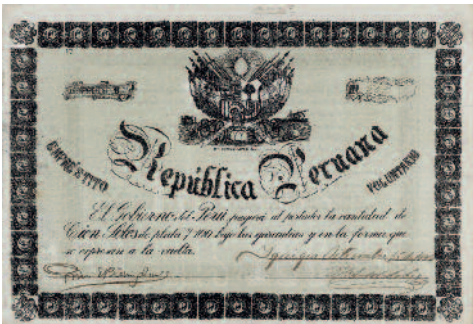 República Peruana
EMPRÉSTITO
VOLUNTARIO
El Gobierno del Perú pagará al portador la cantidad de
Cien Soles de plata bajo las garantías y en la forma que
se expresan a la vuelta.
Iquique